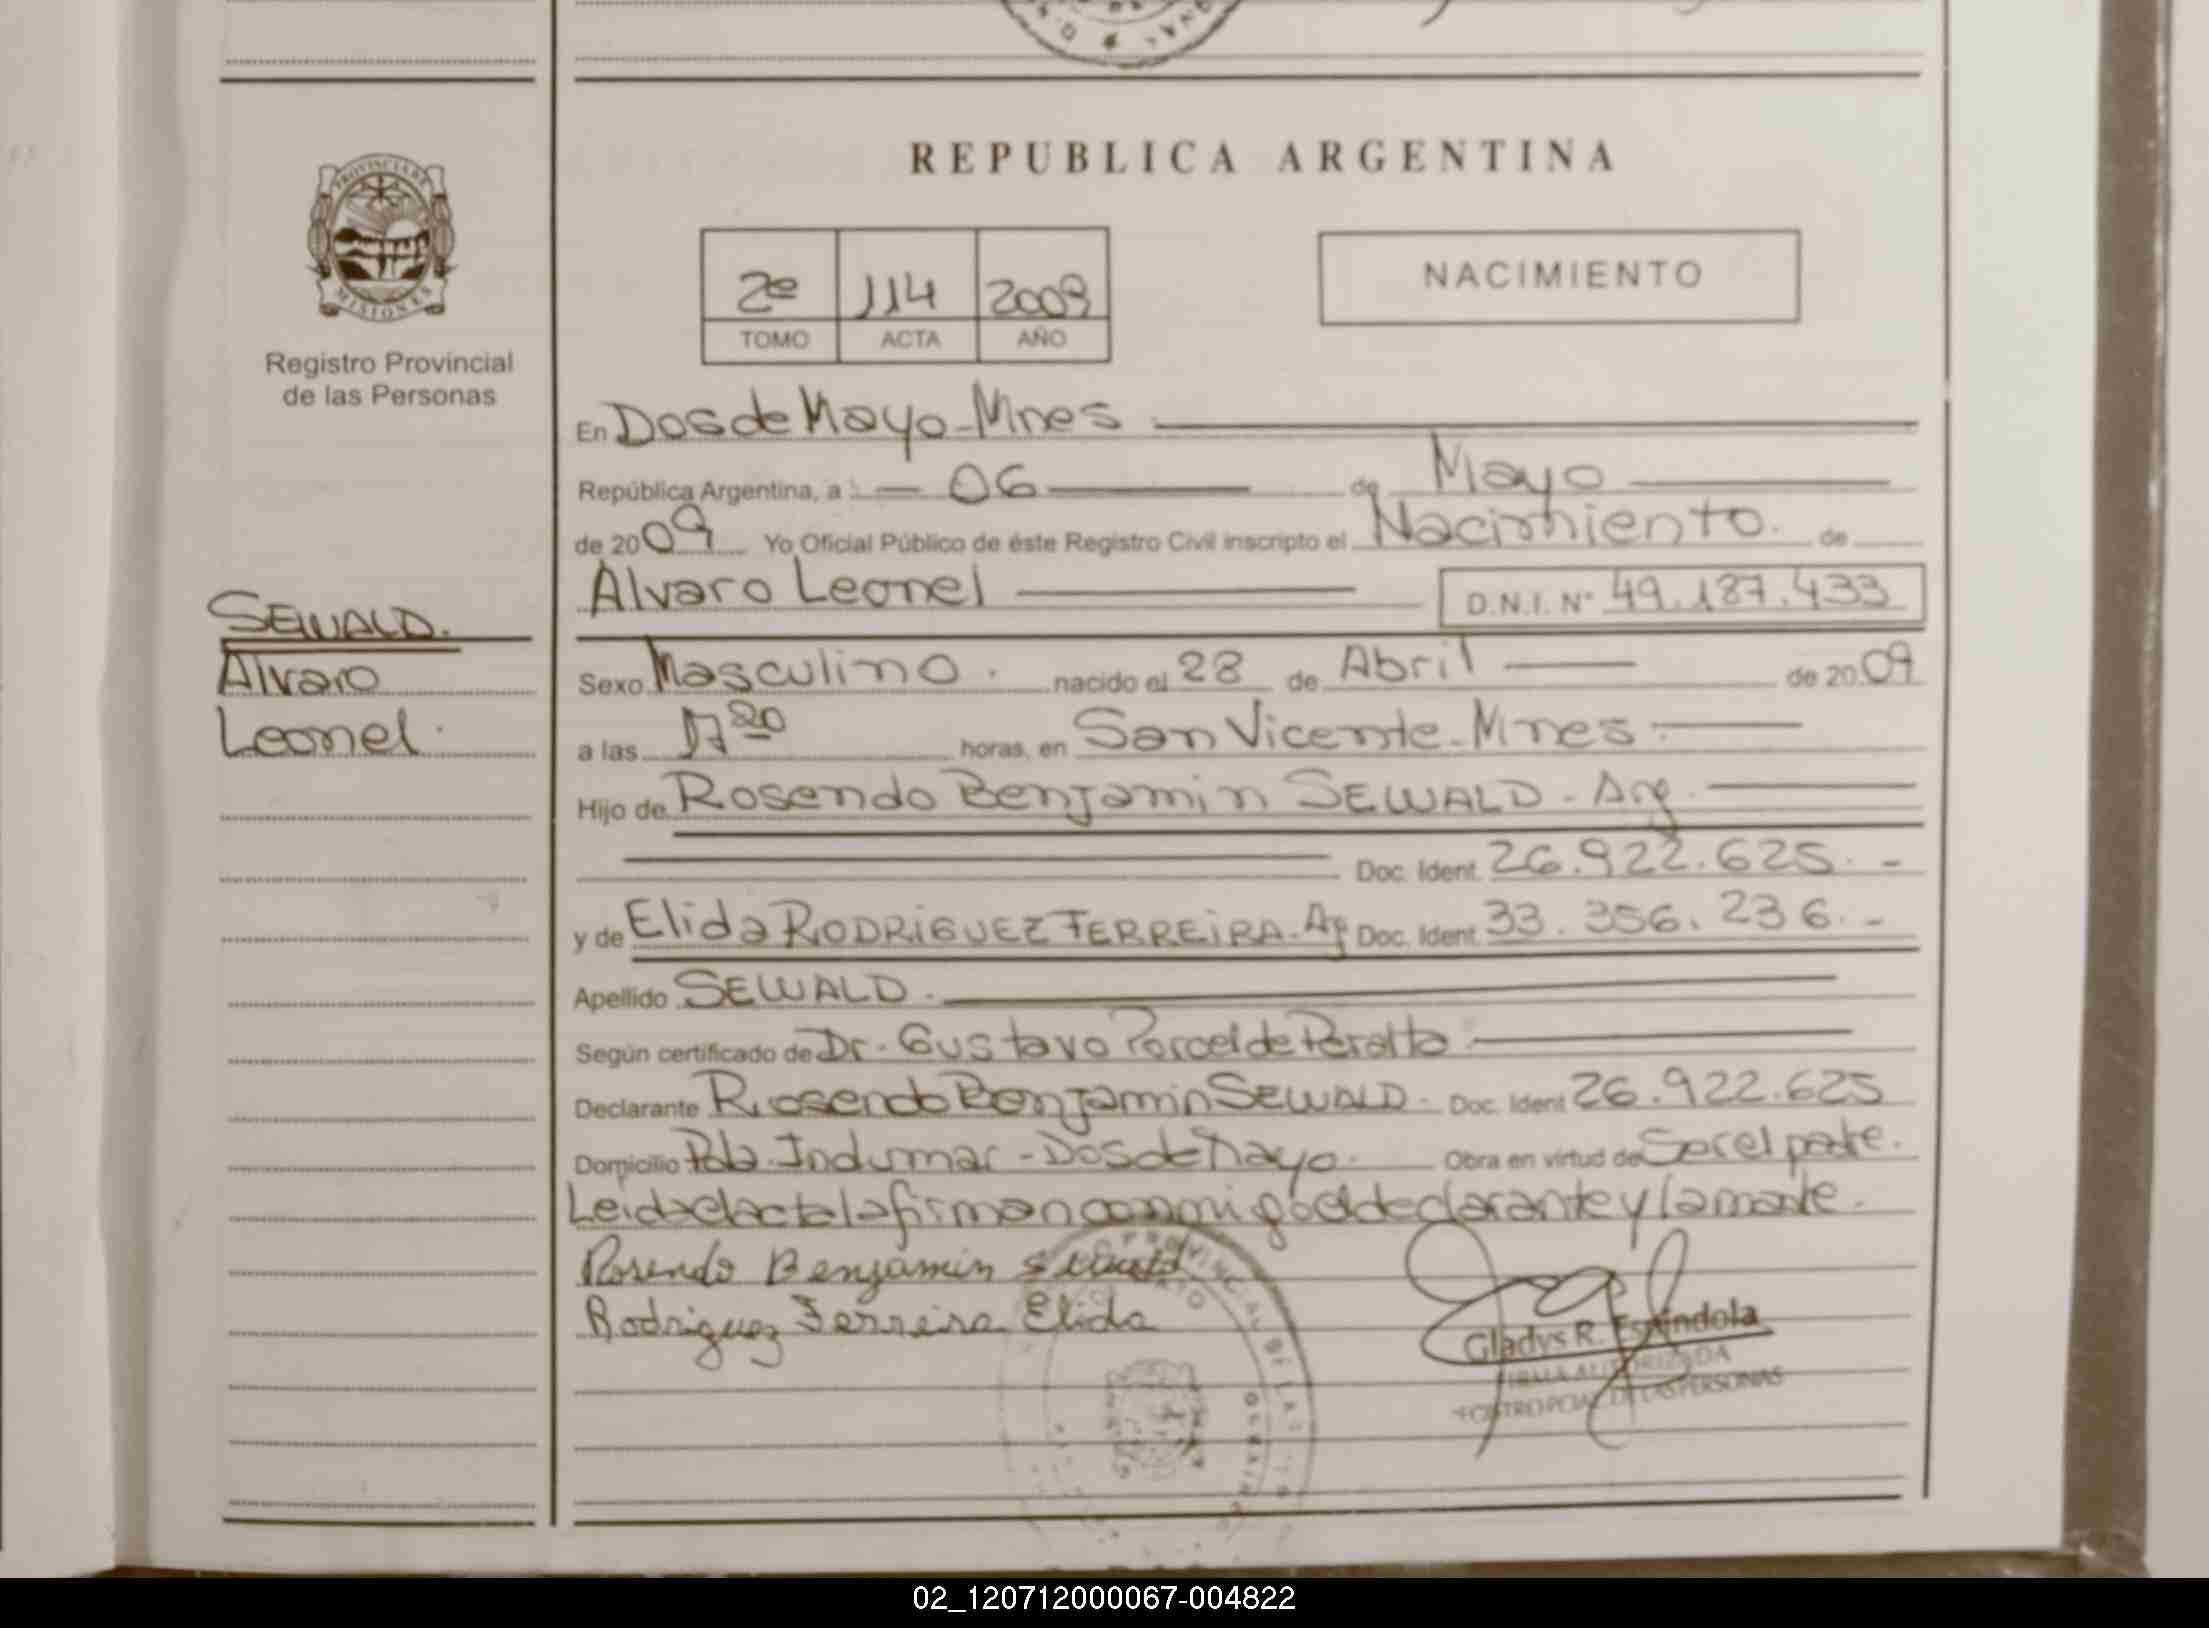 REPUBLICA ARGENTINA
PROVINCIA DE
MISIONES
Registro Provincial
de las Personas
2º 114 2009
TOMO ACTA AÑO
NACIMIENTO
En Dos de Mayo - Mnes
República Argentina, a 06 de Mayo
de 2009 Yo Oficial Público de éste Registro Civil inscripto el Nacimiento. de
Alvaro Leonel D.N.I. Nº 49.187.433
SEWALD.
Alvaro
Leonel.
Sexo Masculino. nacido el 28 de Abril de 2009
a las 17 20 horas, en San Vicente - Mnes.
Hijo de Rosendo Benjamin SEWALD - Arg.
Doc. Ident. 26.922.625. -
y de Elida RODRIGUEZ FERREIRA - Ag Doc. Ident. 33.356.236. -
Apellido SEWALD.
Según certificado de Dr. Gustavo Porcel de Peralta
Declarante Rosendo Benjamin SEWALD. Doc. Ident 26.922.625
Domicilio Pda. Indumar - Dos de Mayo. Obra en virtud de Ser el padre.
Leida el acta la firman conmigo el declarante y la madre.
Rosendo Benjamin Sewald
Rodriguez Ferreira Elida
Gladys R. Espíndola
FIRMA AUTORIZADA
REGISTRO PCIAL. DE LAS PERSONAS
02_120712000067-004822